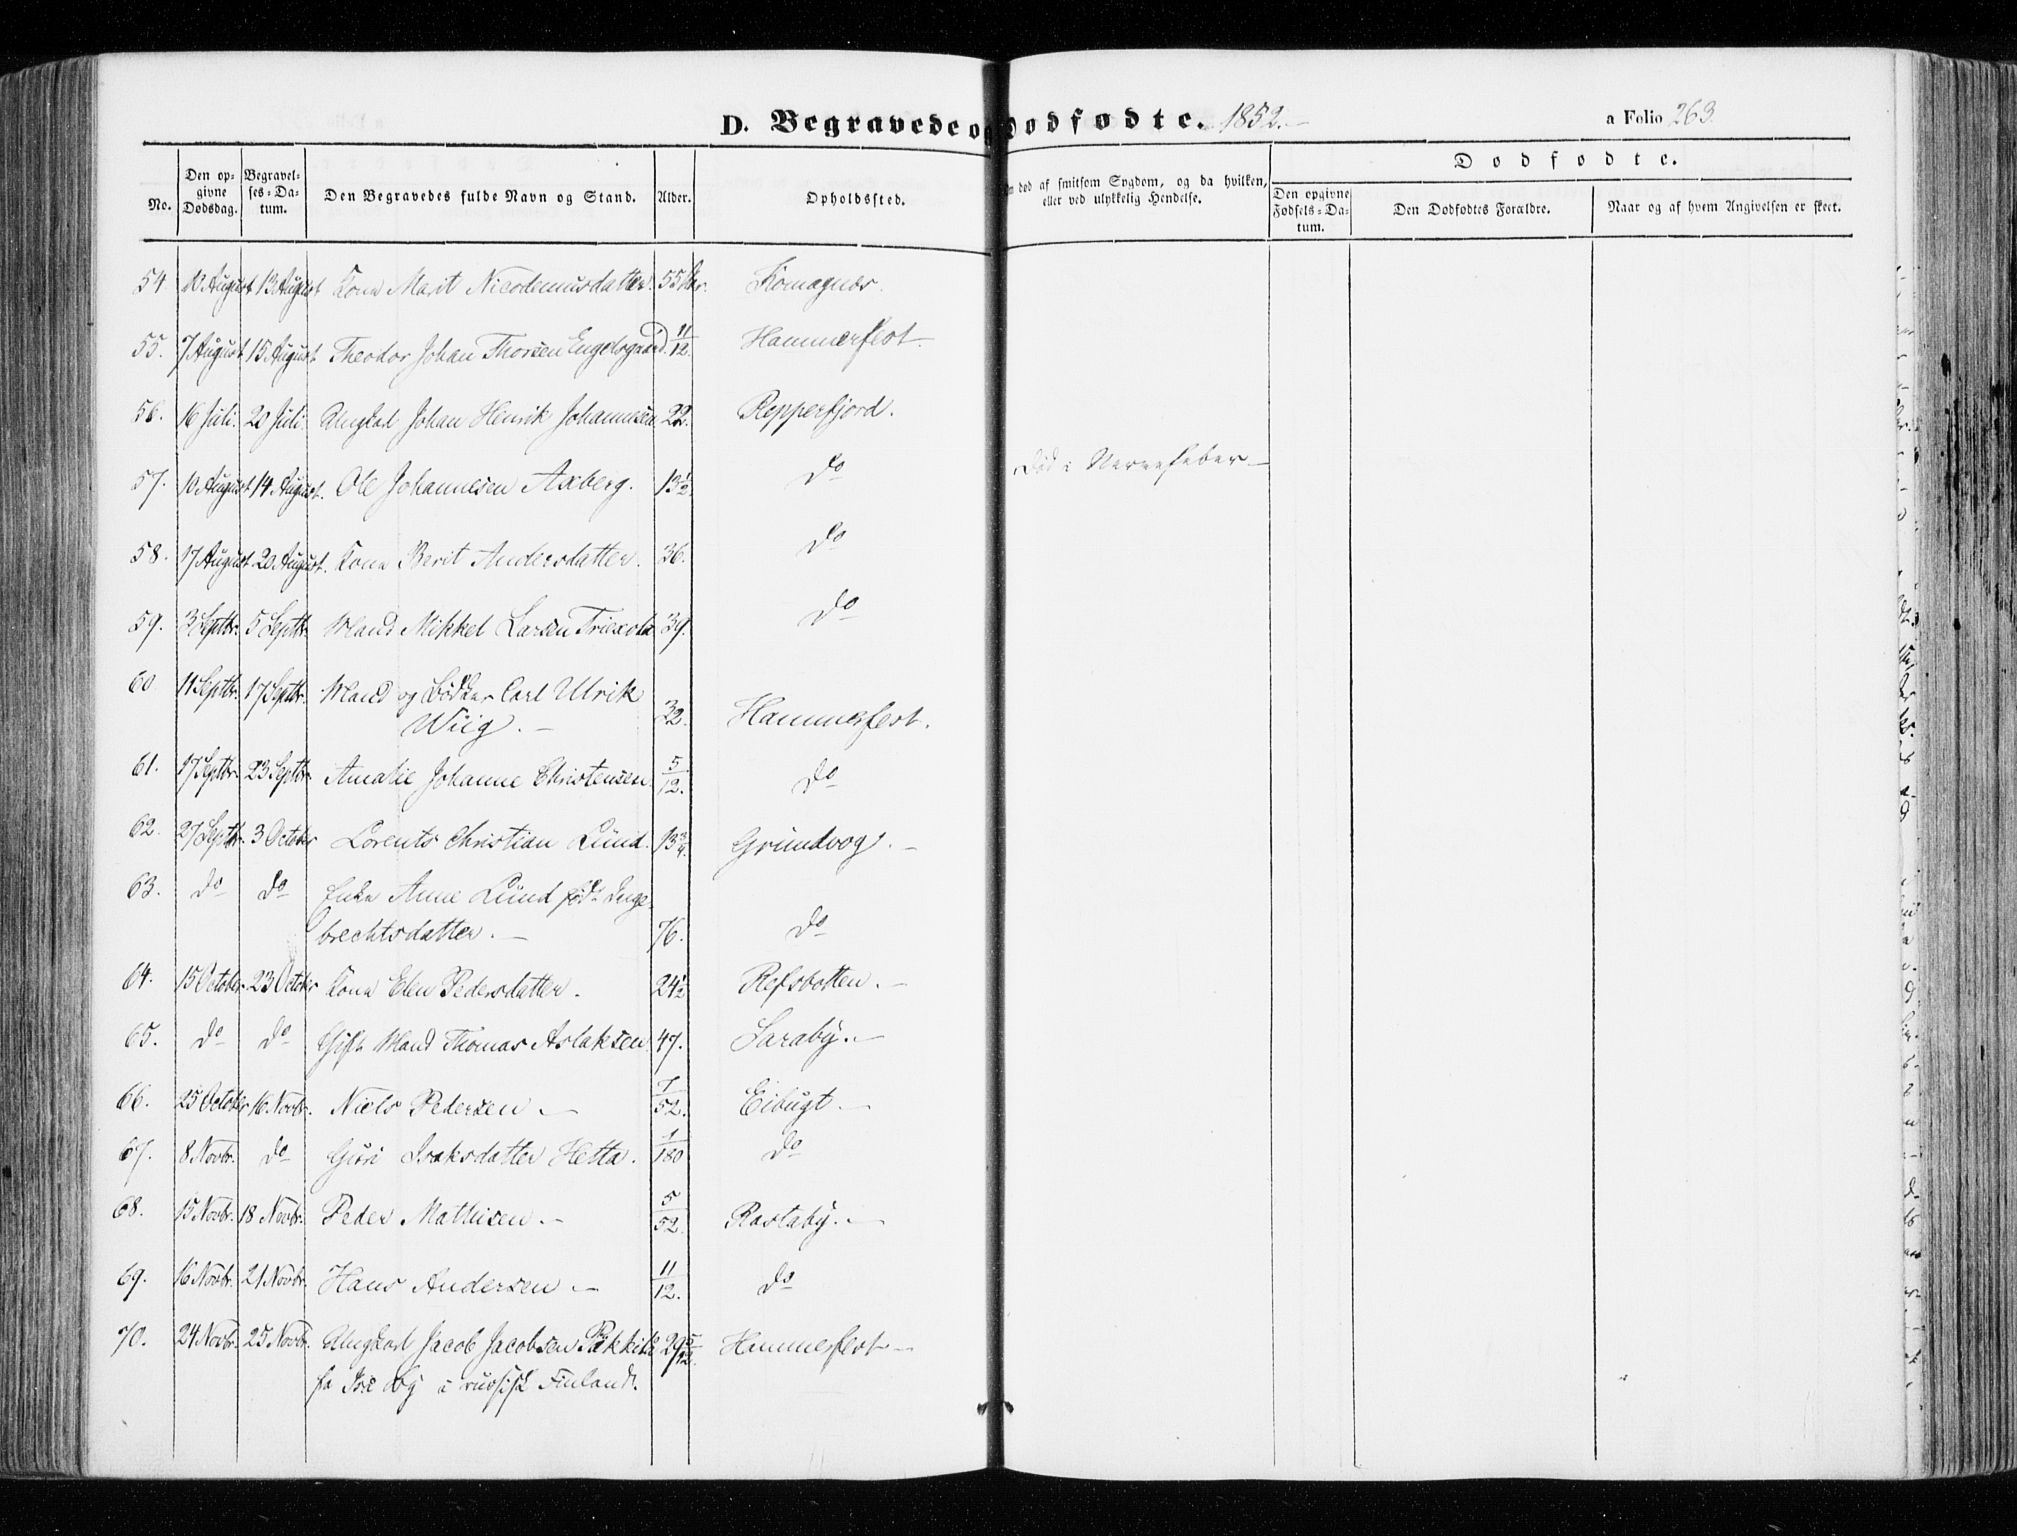 D. Begravede og Dødfødte. 1852.
a Folio 263
Dødfødte.
No.
Den op-
givne
Dødsdag.
Begravel-
ses-Da-
tum.
Den Begravedes fulde Navn og Stand.
Alder.
Opholdssted.
død af smitsom Sygdom, og da hvilken,
eller ved ulykkelig Hendelse.
Den opgivne
Fødsels-Da-
tum.
Den Dødfødtes Forældre.
Naar og af hvem Angivelsen er skeet.
54 10 August 13 August Kone Marit Nicodemusdatter. 55 Aar. Komagnes.
55. 7 August 15 August Theodor Johan Thorsen Engelsgaard. 11/12. Hammerfest.
56. 16 Juli. 20 Juli. Ungkarl Johan Henrik Johannesen 22. Repperfjord.
57. 10 August 14 August. Ole Johannesen Axberg. 13 1/2 Do Død i Nervefeber
58. 17 August 20 August. Kone Berit Andersdatter. 36. Do
59. 3 Septbr. 5 Septbr. Mand Mikkel Larsen 39. Do
60 11 Septbr. 17 Septbr. Mand og Bødker Carl Ulrik
Wiig. 32. Hammerfest.
61. 17 Septbr. 23 Septbr. Amalie Johanne Christensen 5/12. Do
62. 27 Septbr. 3 October Lorents Christian Lund. 13 3/4. Grundvog.
63. Do Do Enke Anne Lund født Inge-
brechtsdatter. 76. Do
64. 15 October 23 October Kone Elen Pedersdatter. 24 1/2 Refsbotten.
65. Do Do Gift Mand Thomas Aslaksen 47. Saraby.
66. 25 October 16 Novbr. Niels Pedersen 7/52. Eibugt.
67. 8 Novbr. Do Guri Isaksdatter Hetta. 1/180 Do
68. 15 Novbr. 18 Novbr. Peder Mathisen 5/52 Rastaby.
69. 16 Novbr. 21 Novbr. Hans Andersen 11/12. Do
70. 24 Novbr. 25 Novbr. Ungkarl Jacob Jacobsen 29 5/12. Hammerfest
fra i russisk Finland.